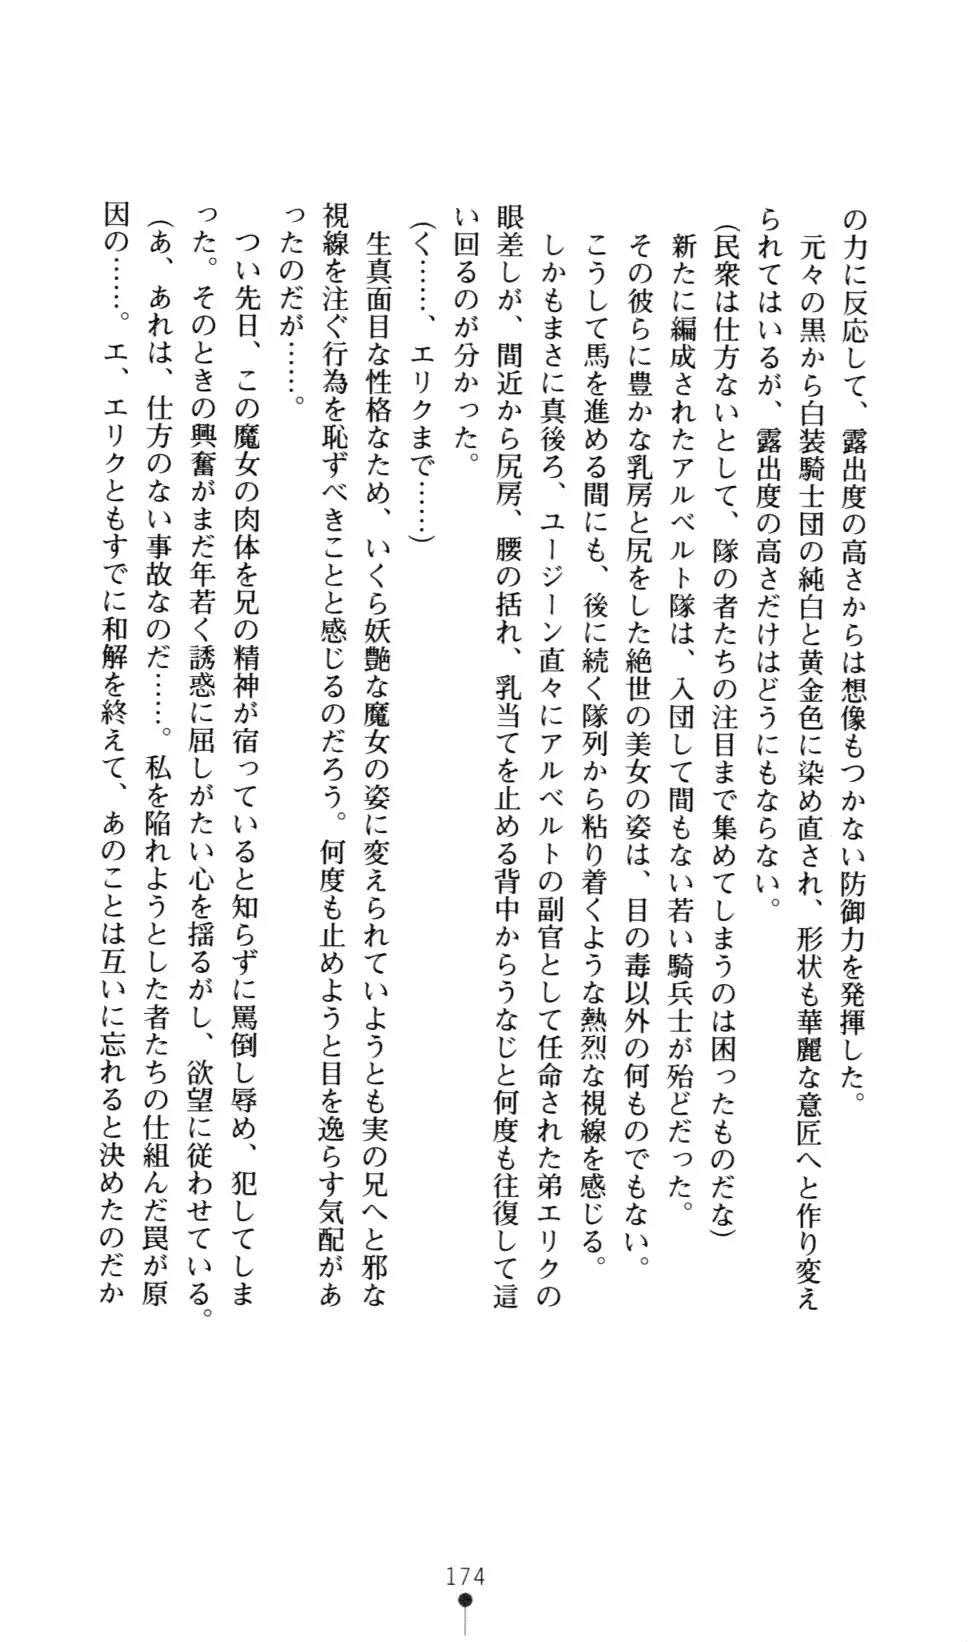 の力に反応して、露出度の高さからは想像もつかない防御力を発揮した。
元々の黒から白装騎士団の純白と黄金色に染め直され、形状も華麗な意匠へと作り変え
られてはいるが、露出度の高さだけはどうにもならない。
(民衆は仕方ないとして、隊の者たちの注目まで集めてしまうのは困ったものだな)
新たに編成されたアルベルト隊は、入団して間もない若い騎兵士が殆どだった。
その彼らに豊かな乳房と尻をした絶世の美女の姿は、目の毒以外の何ものでもない。
こうして馬を進める間にも、後に続く隊列から粘り着くような熱烈な視線を感じる。
しかもまさに真後ろ、ユージーン直々にアルベルトの副官として任命された弟エリクの
眼差しが、間近から尻房、腰の括れ、乳当てを止める背中からうなじと何度も往復して這
い回るのが分かった。
(く……、エリクまで……)
生真面目な性格なため、いくら妖艶な魔女の姿に変えられていようとも実の兄へと邪な
視線を注ぐ行為を恥ずべきことと感じるのだろう。何度も止めようと目を逸らす気配があ
ったのだが……。
つい先日、この魔女の肉体を兄の精神が宿っていると知らずに罵倒し辱め、犯してしま
った。そのときの興奮がまだ年若く誘惑に屈しがたい心を揺るがし、欲望に従わせている。
(あ、あれは、仕方のない事故なのだ……。私を陥れようとした者たちの仕組んだ罠が原
因の……。エ、エリクともすでに和解を終えて、あのことは互いに忘れると決めたのだか
174